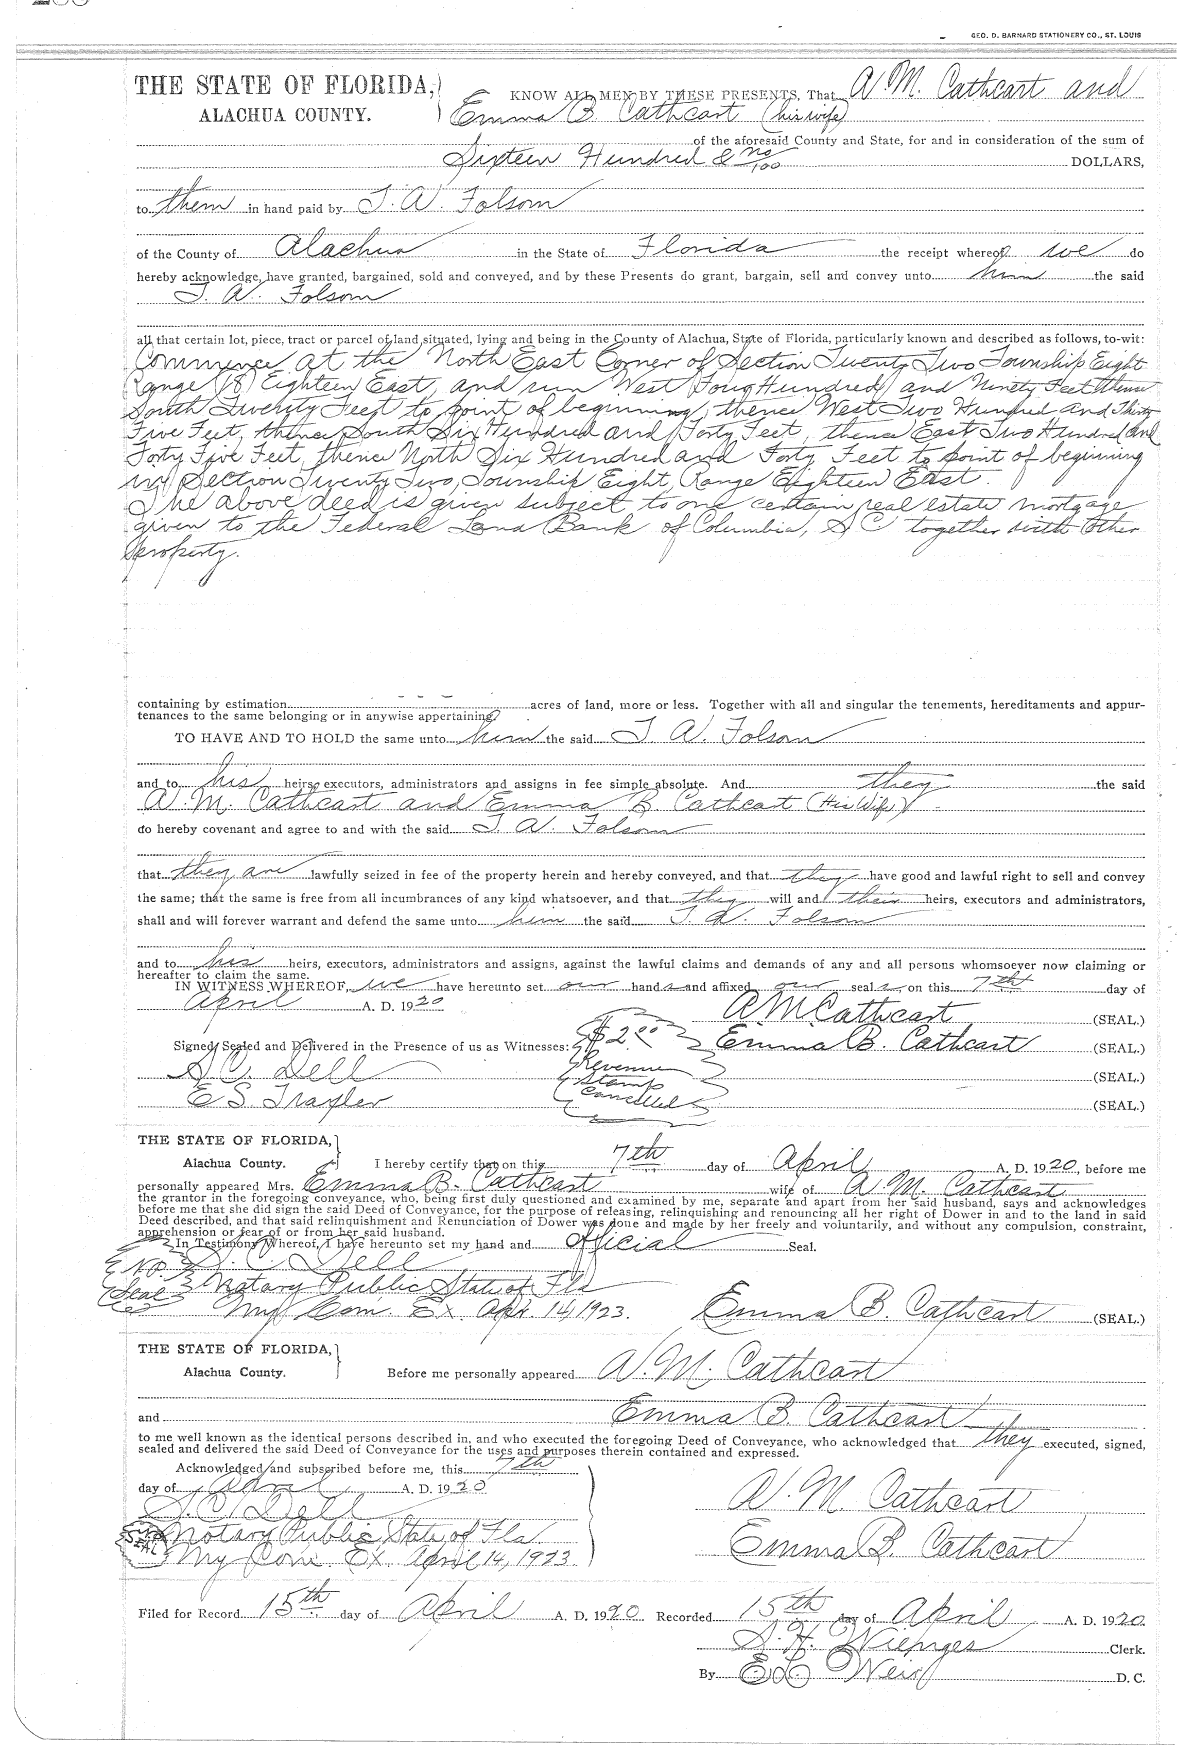 GEO. D. BARNARD STATIONERY CO., ST. LOUIS
THE STATE OF FLORIDA,
ALACHUA COUNTY.
KNOW ALL MEN BY THESE PRESENTS, That A. M. Cathcart and
Emma B. Cathcart (his wife)
of the aforesaid County and State, for and in consideration of the sum of
Sixteen Hundred & no/100 DOLLARS,
to them in hand paid by T. W. Folsom
of the County of Alachua in the State of Florida the receipt whereof we do
hereby acknowledge, have granted, bargained, sold and conveyed, and by these Presents do grant, bargain, sell and convey unto him the said
T. W. Folsom
all that certain lot, piece, tract or parcel of land, situated, lying and being in the County of Alachua, State of Florida, particularly known and described as follows, to-wit:
Commence at the North East Corner of Section Twenty Two Township Eight
Range (18) Eighteen East, and run West Four Hundred and Ninety Feet thence
South Twenty Feet to point of beginning, thence West Two Hundred and Thirty
Five Feet, thence South Six Hundred and Forty Feet, thence East Two Hundred and
Forty Five Feet, thence North Six Hundred and Forty Feet to point of beginning
in Section Twenty Two, Township Eight, Range Eighteen East.
The above deed is given subject to one certain real estate mortgage
given to the Federal Land Bank of Columbia, S C together with other
property.
containing by estimation acres of land, more or less. Together with all and singular the tenements, hereditaments and appur-
tenances to the same belonging or in anywise appertaining.
TO HAVE AND TO HOLD the same unto him the said T. W. Folsom
and to his heirs, executors, administrators and assigns in fee simple absolute. And they the said
A. M. Cathcart and Emma B. Cathcart (His Wife)
do hereby covenant and agree to and with the said T. W. Folsom
that they are lawfully seized in fee of the property herein and hereby conveyed, and that they have good and lawful right to sell and convey
the same; that the same is free from all incumbrances of any kind whatsoever, and that they will and their heirs, executors and administrators,
shall and will forever warrant and defend the same unto him the said T. W. Folsom
and to his heirs, executors, administrators and assigns, against the lawful claims and demands of any and all persons whomsoever now claiming or
hereafter to claim the same.
IN WITNESS WHEREOF, we have hereunto set our hands and affixed our seals on this 7th day of
April A. D. 1920
A. M. Cathcart (SEAL.)
Signed, Sealed and Delivered in the Presence of us as Witnesses: $2.00 Emma B. Cathcart (SEAL.)
S. C. Dell Revenue Stamp (SEAL.)
E S. Traxler Cancelled (SEAL.)
THE STATE OF FLORIDA,
Alachua County. I hereby certify that on this 7th day of April A. D. 1920, before me
personally appeared Mrs. Emma B. Cathcart wife of A. M. Cathcart
the grantor in the foregoing conveyance, who, being first duly questioned and examined by me, separate and apart from her said husband, says and acknowledges
before me that she did sign the said Deed of Conveyance, for the purpose of releasing, relinquishing and renouncing all her right of Dower in and to the land in said
Deed described, and that said relinquishment and Renunciation of Dower was done and made by her freely and voluntarily, and without any compulsion, constraint,
apprehension or fear of or from her said husband.
In Testimony Whereof, I have hereunto set my hand and official Seal.
N.P. S. C. Dell
Seal Notary Public State of Fla
My Com. Ex. Apr. 14, 1923. Emma B. Cathcart (SEAL.)
THE STATE OF FLORIDA,
Alachua County. Before me personally appeared A. M. Cathcart
and Emma B. Cathcart
to me well known as the identical persons described in, and who executed the foregoing Deed of Conveyance, who acknowledged that they executed, signed,
sealed and delivered the said Deed of Conveyance for the uses and purposes therein contained and expressed.
Acknowledged and subscribed before me, this 7th
day of April A. D. 1920
S. C. Dell A. M. Cathcart
Notary Public State of Fla. Emma B. Cathcart
SEAL My Com. Ex. April 14, 1923
Filed for Record 15th day of April A. D. 1920 Recorded 15th day of April A. D. 1920
S. H. Wienges Clerk.
By Weir D. C.